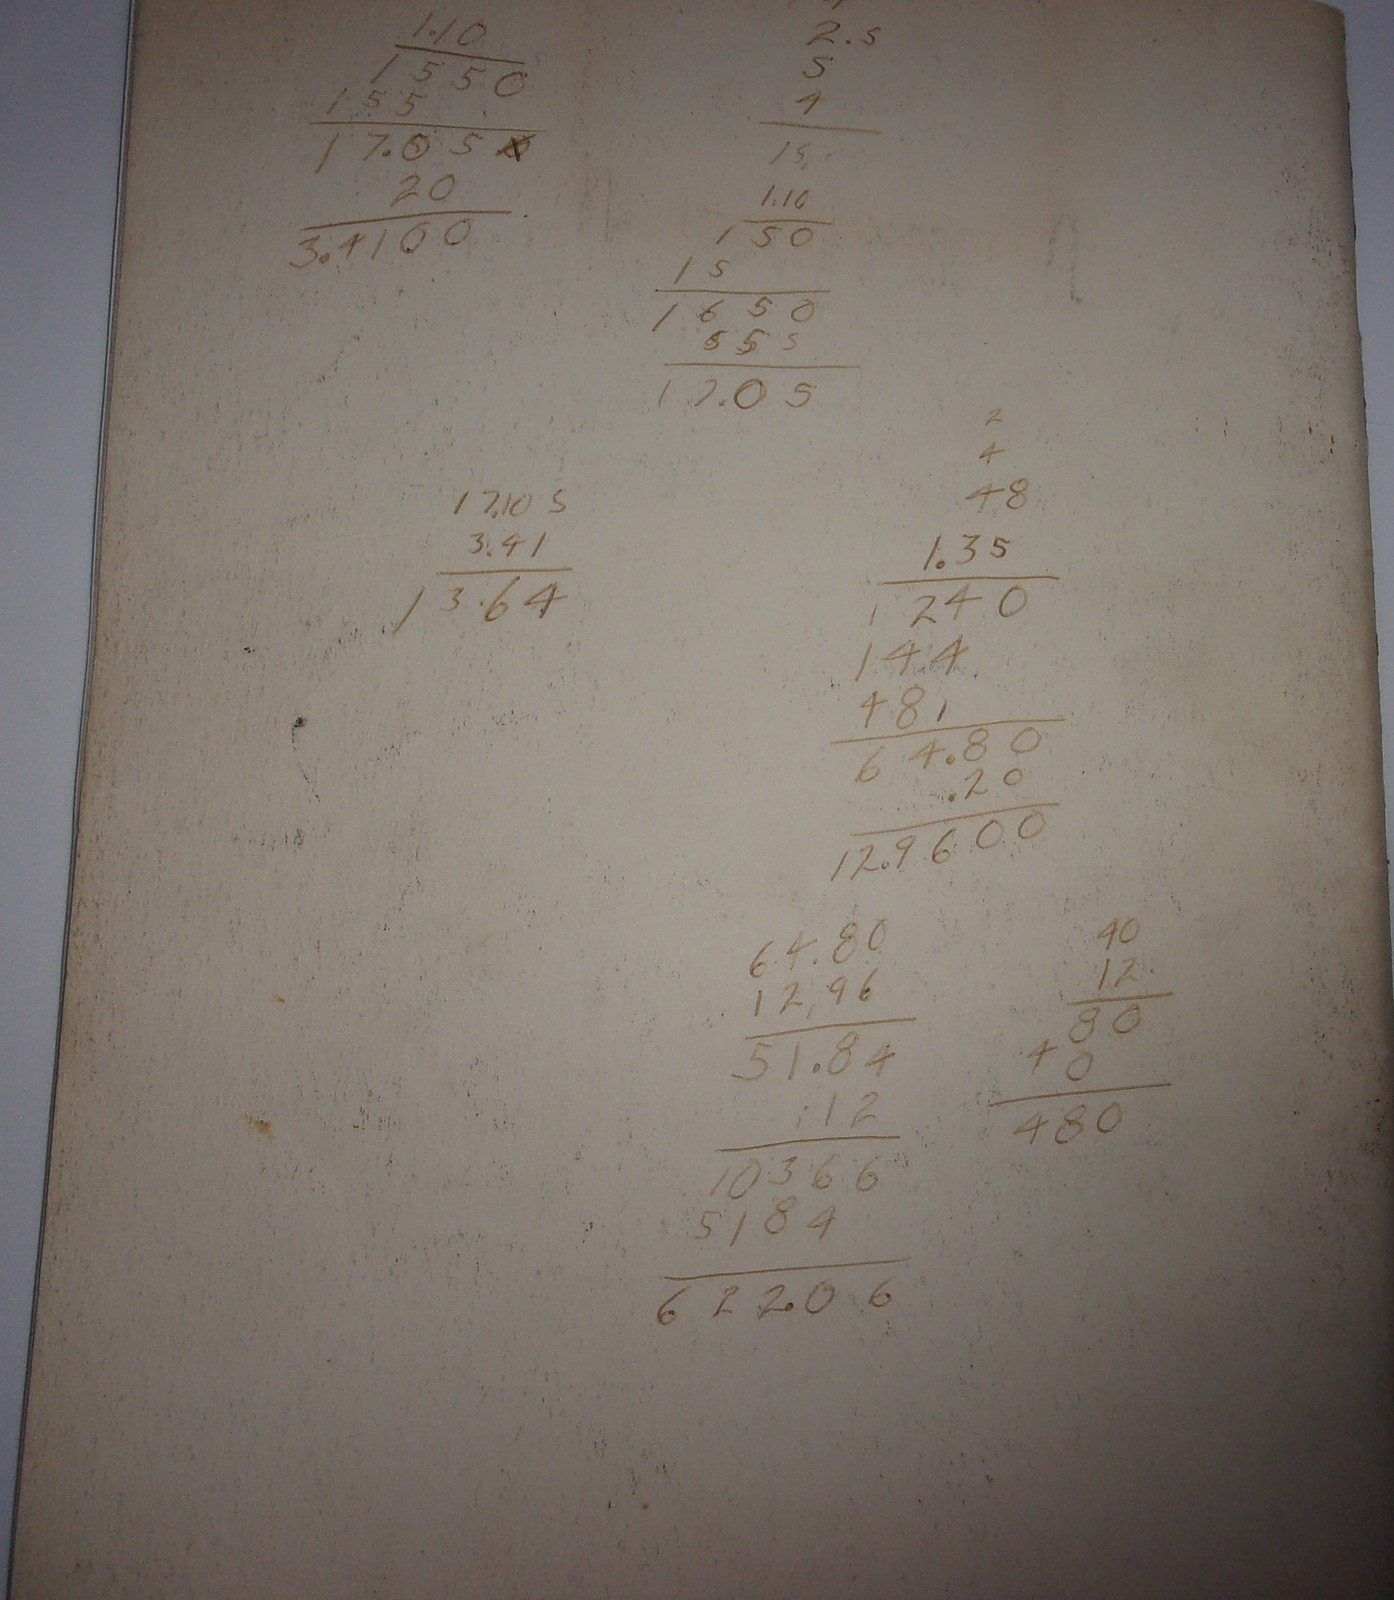 1.10
1550
155
17.05
20
3.4100
2.5
5
4
15.
1.10
150
15
1650
555
17.05
17.105
3.41
13.64
2
4
48
1.35
1240
144
481
64.80
.20
12.9600
64.80
12.96
51.84
.12
10366
5184
622.06
40
12
80
40
480